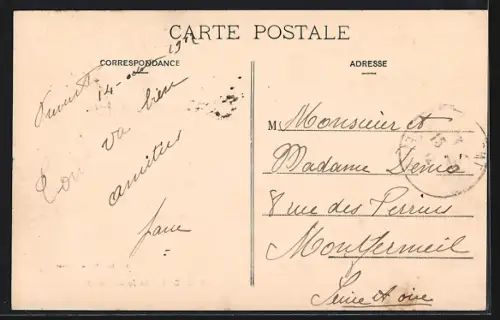 CARTE POSTALE
CORRESPONDANCE
14
va bien
amitiés
ADRESSE
M Monsieur et
Madame Denis
8 rue des Perrins
Montfermeil
Seine et oise